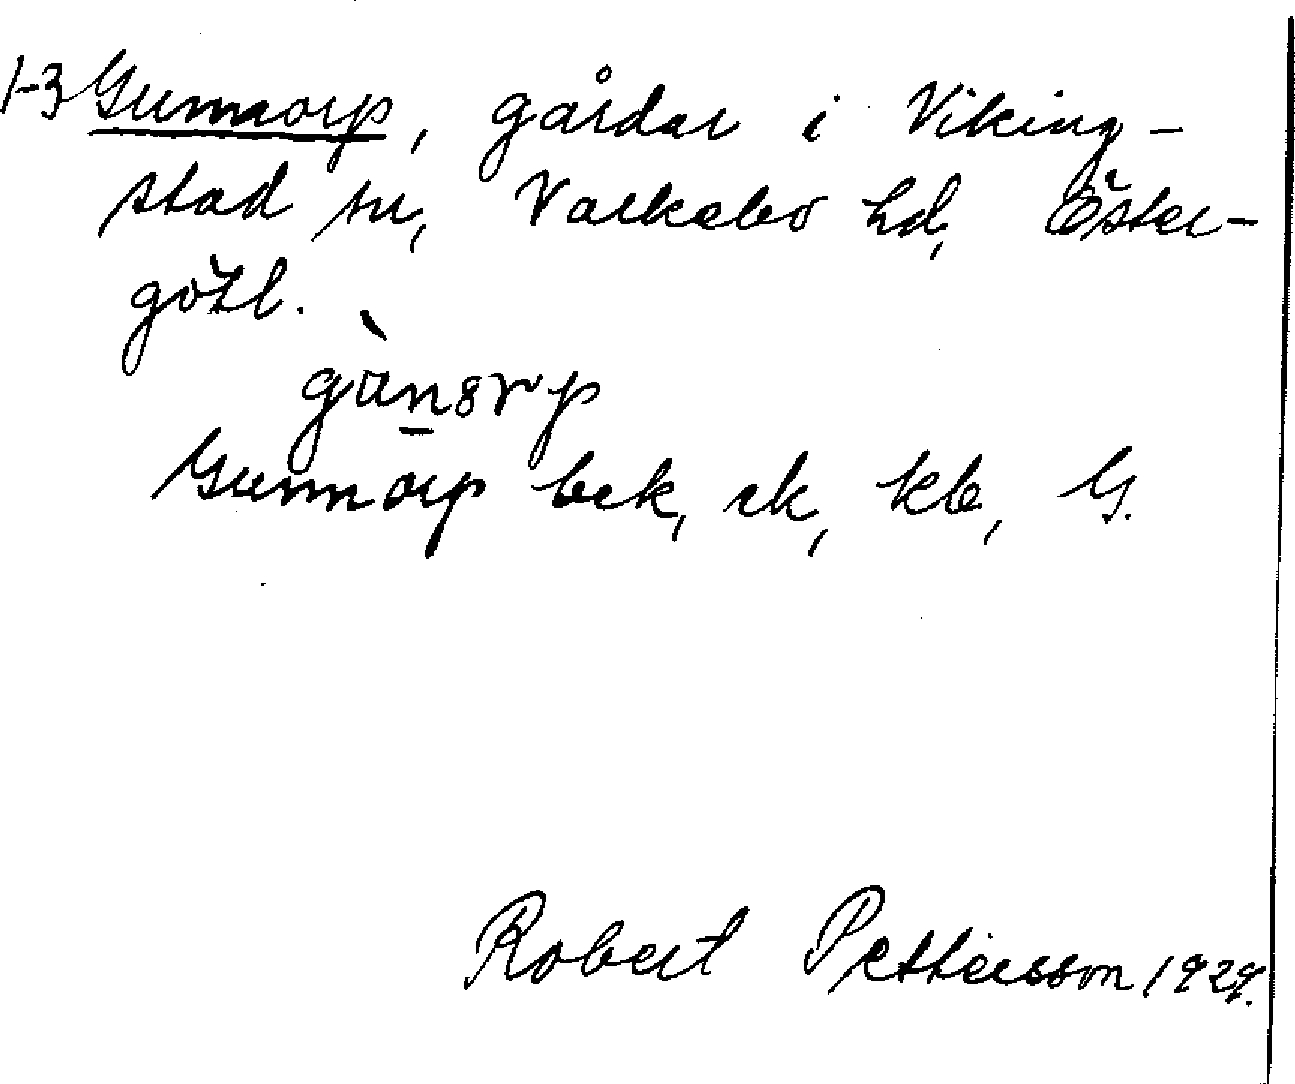 1-3 Gunnorp, gårdar i Viking-
stad sn, Valkebo hd, Öster-
götl.
Gunnorp bek, rk, kb, G.
Robert Pettersson 1929.